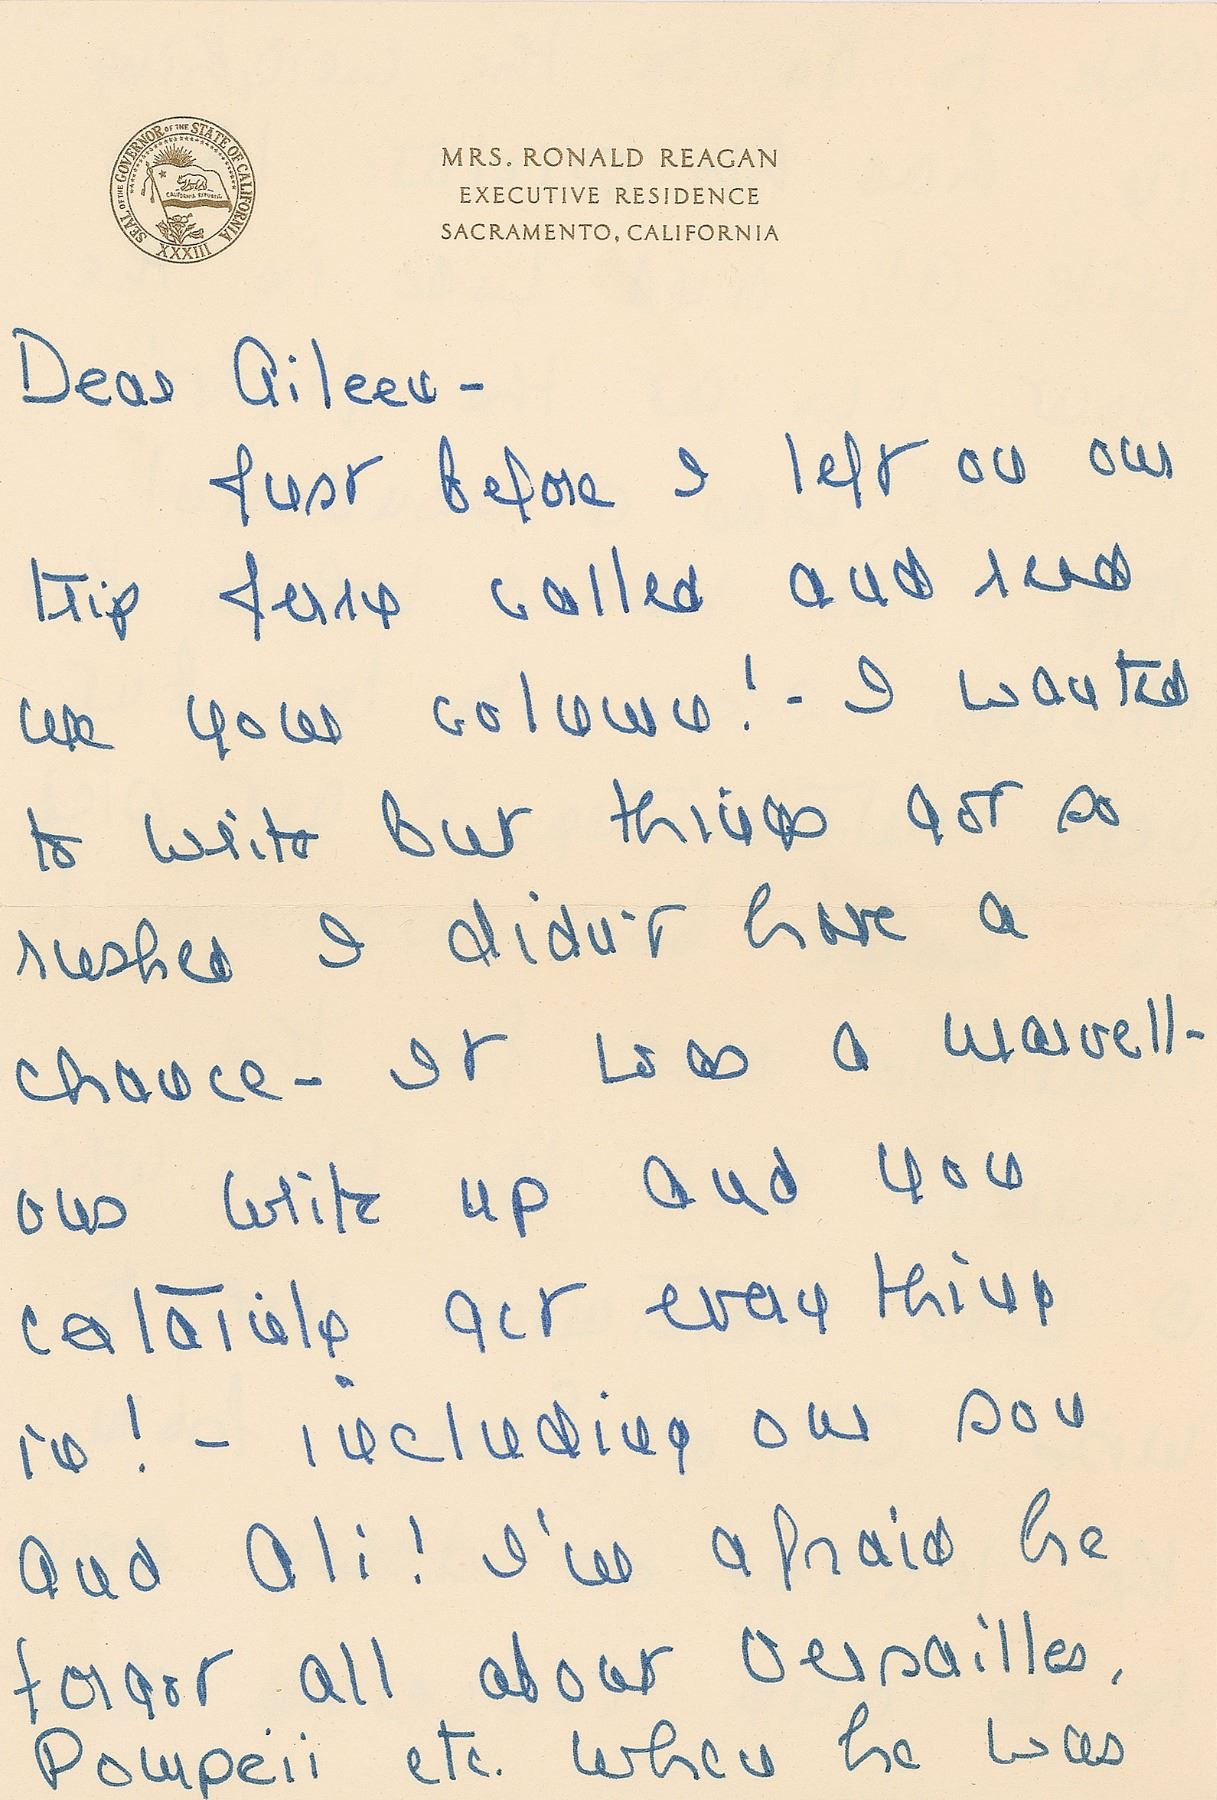 SEAL OF THE GOVERNOR OF THE STATE OF CALIFORNIA
CALIFORNIA REPUBLIC
XXXIII
MRS. RONALD REAGAN
EXECUTIVE RESIDENCE
SACRAMENTO, CALIFORNIA
Dear Aileen -
Just before I left on our
trip called and read
me your column! - I wanted
to write but things got so
rushed I didn't have a
chance - It was a marvell-
ous write up and you
certainly got everything
in! - including our son
and Ali! I'm afraid he
forgot all about Versailles,
Pompeii etc. when he was